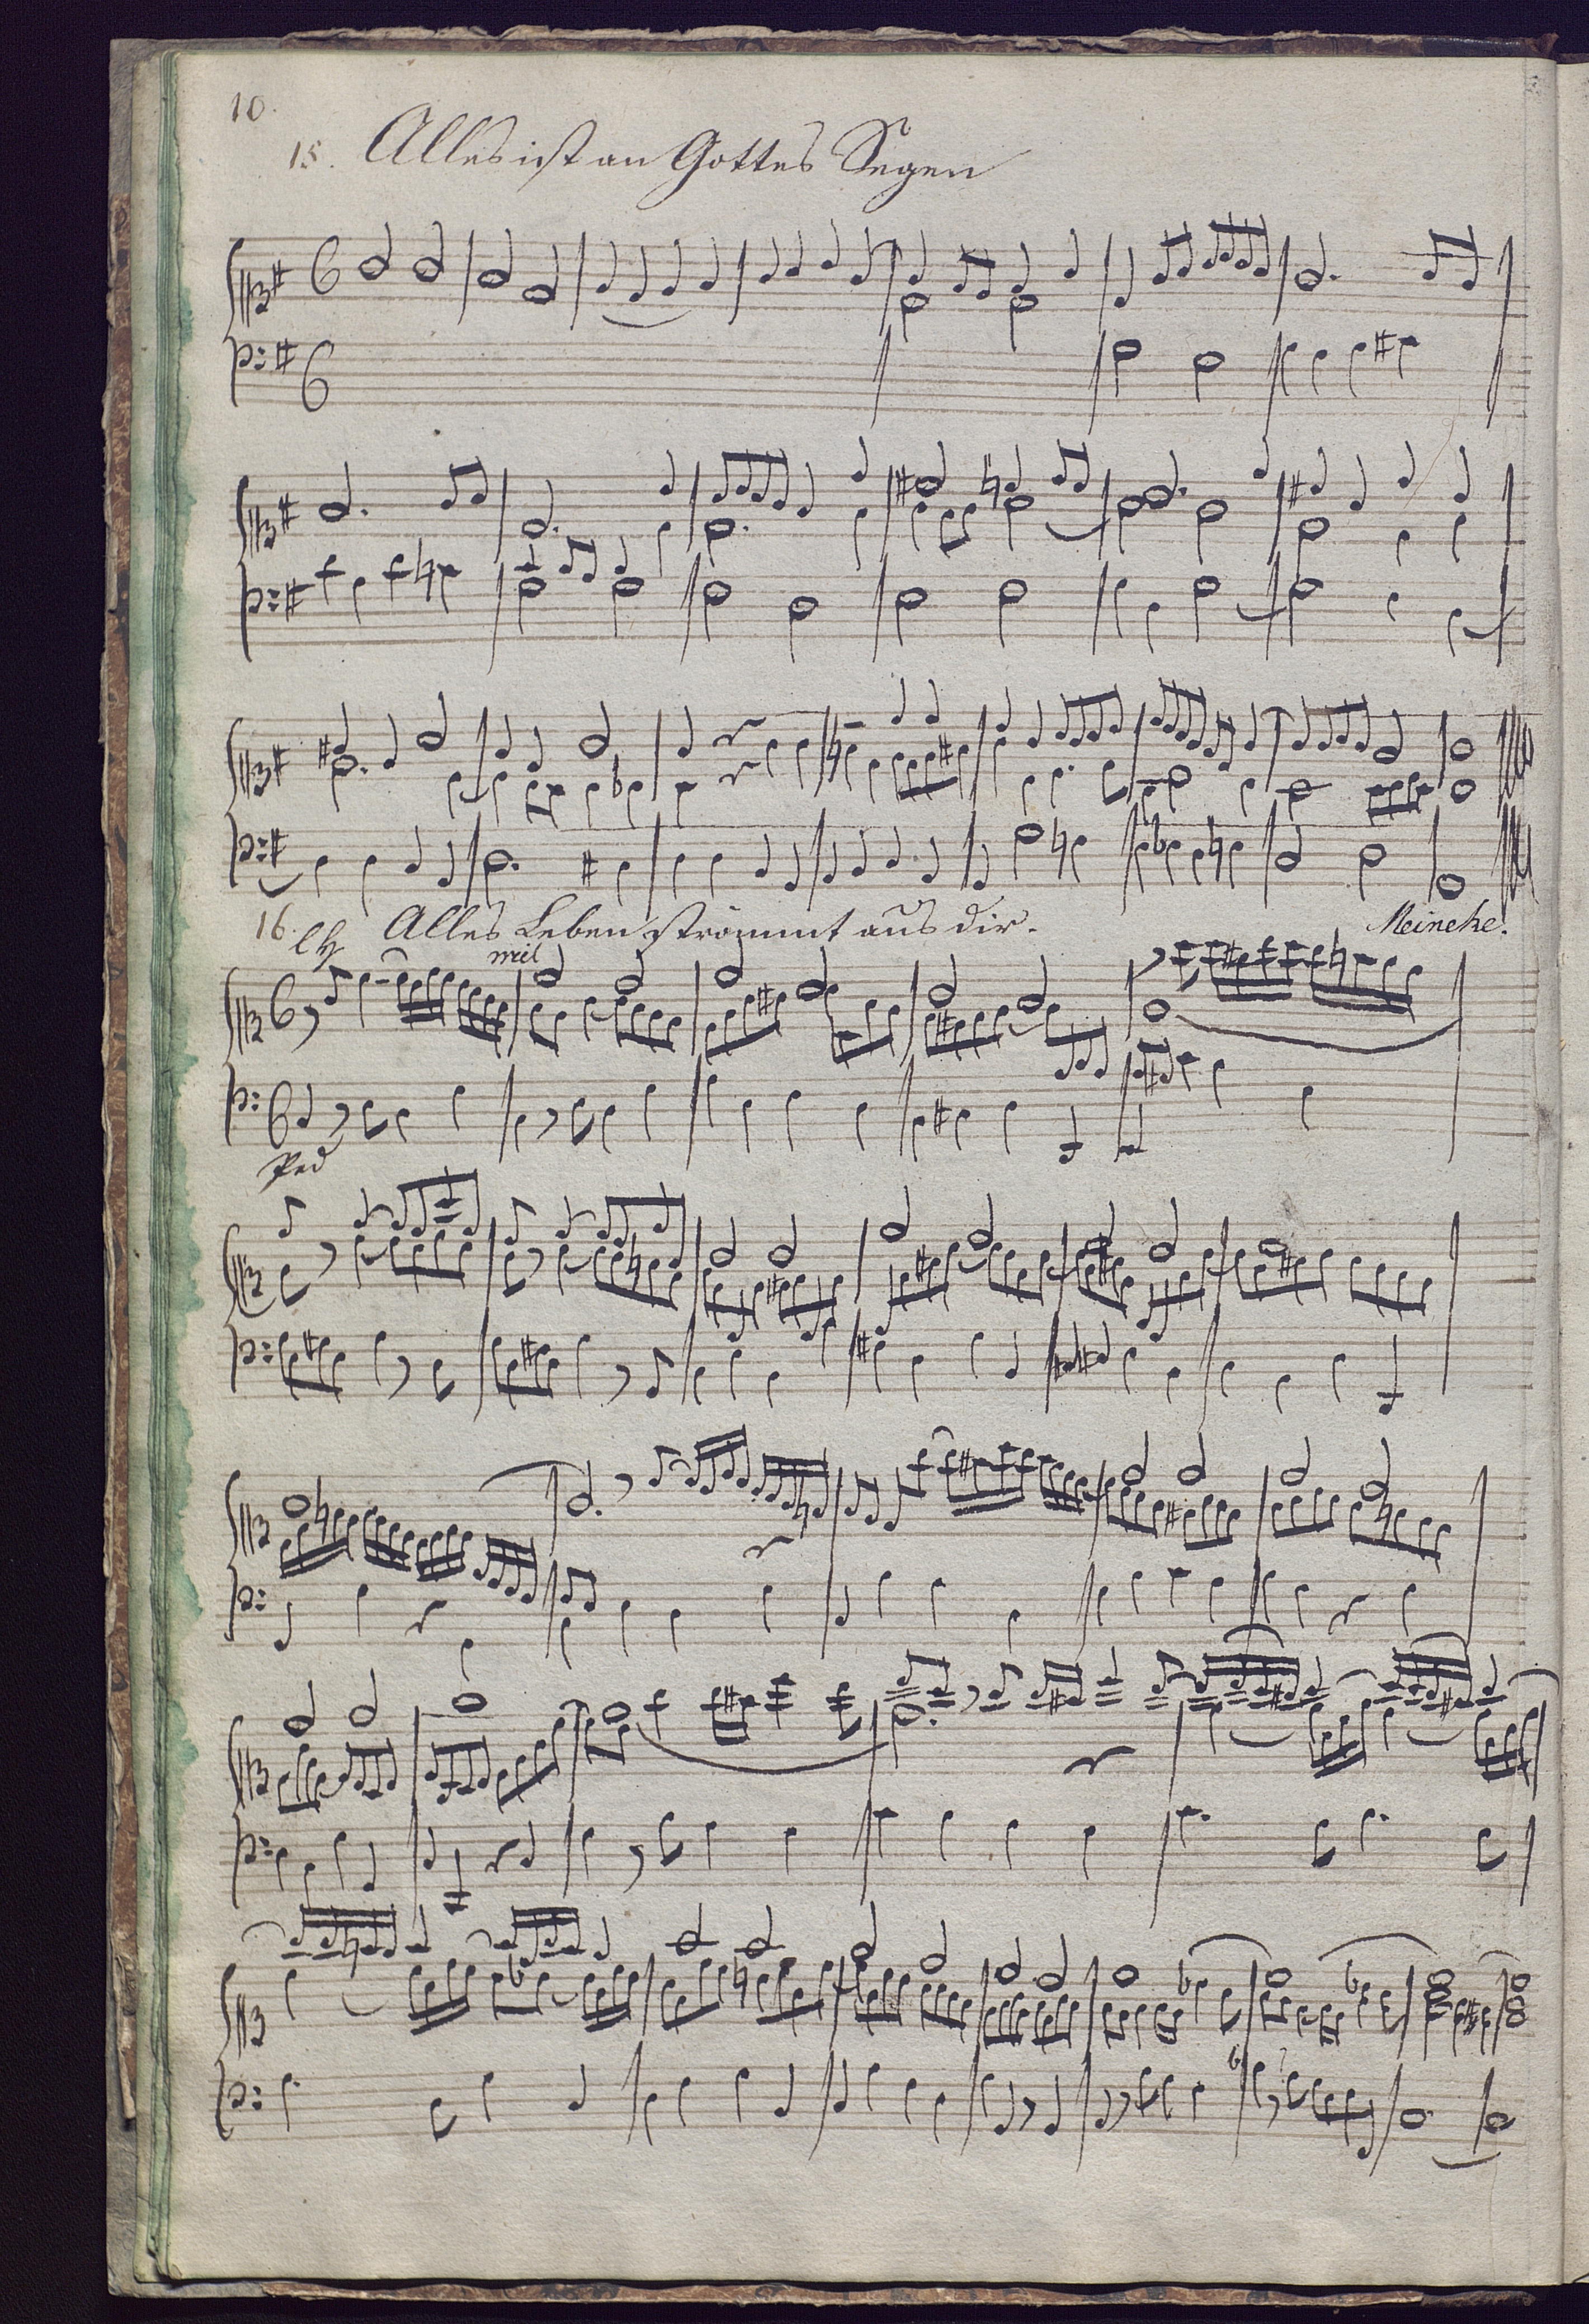 10.
15. Alles ist an Gottes Segen
16. Alles Leben strömmt aus dir. Meineke.
Ped